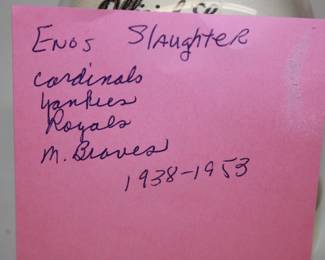 Enos Slaughter
Cardinals
Yankees
Royals
M. Braves
1938-1953